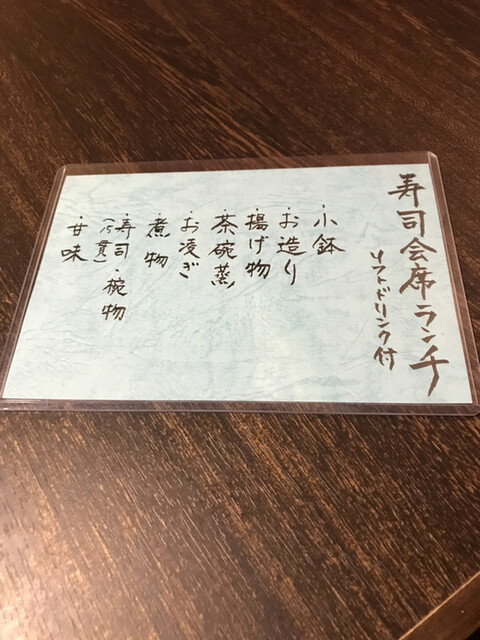 寿司会席ランチ
ソフトドリンク付
・小鉢
・お造り
・揚げ物
・茶碗蒸
・お凌ぎ
・煮物
・寿司・椀物
(五貫)
・甘味